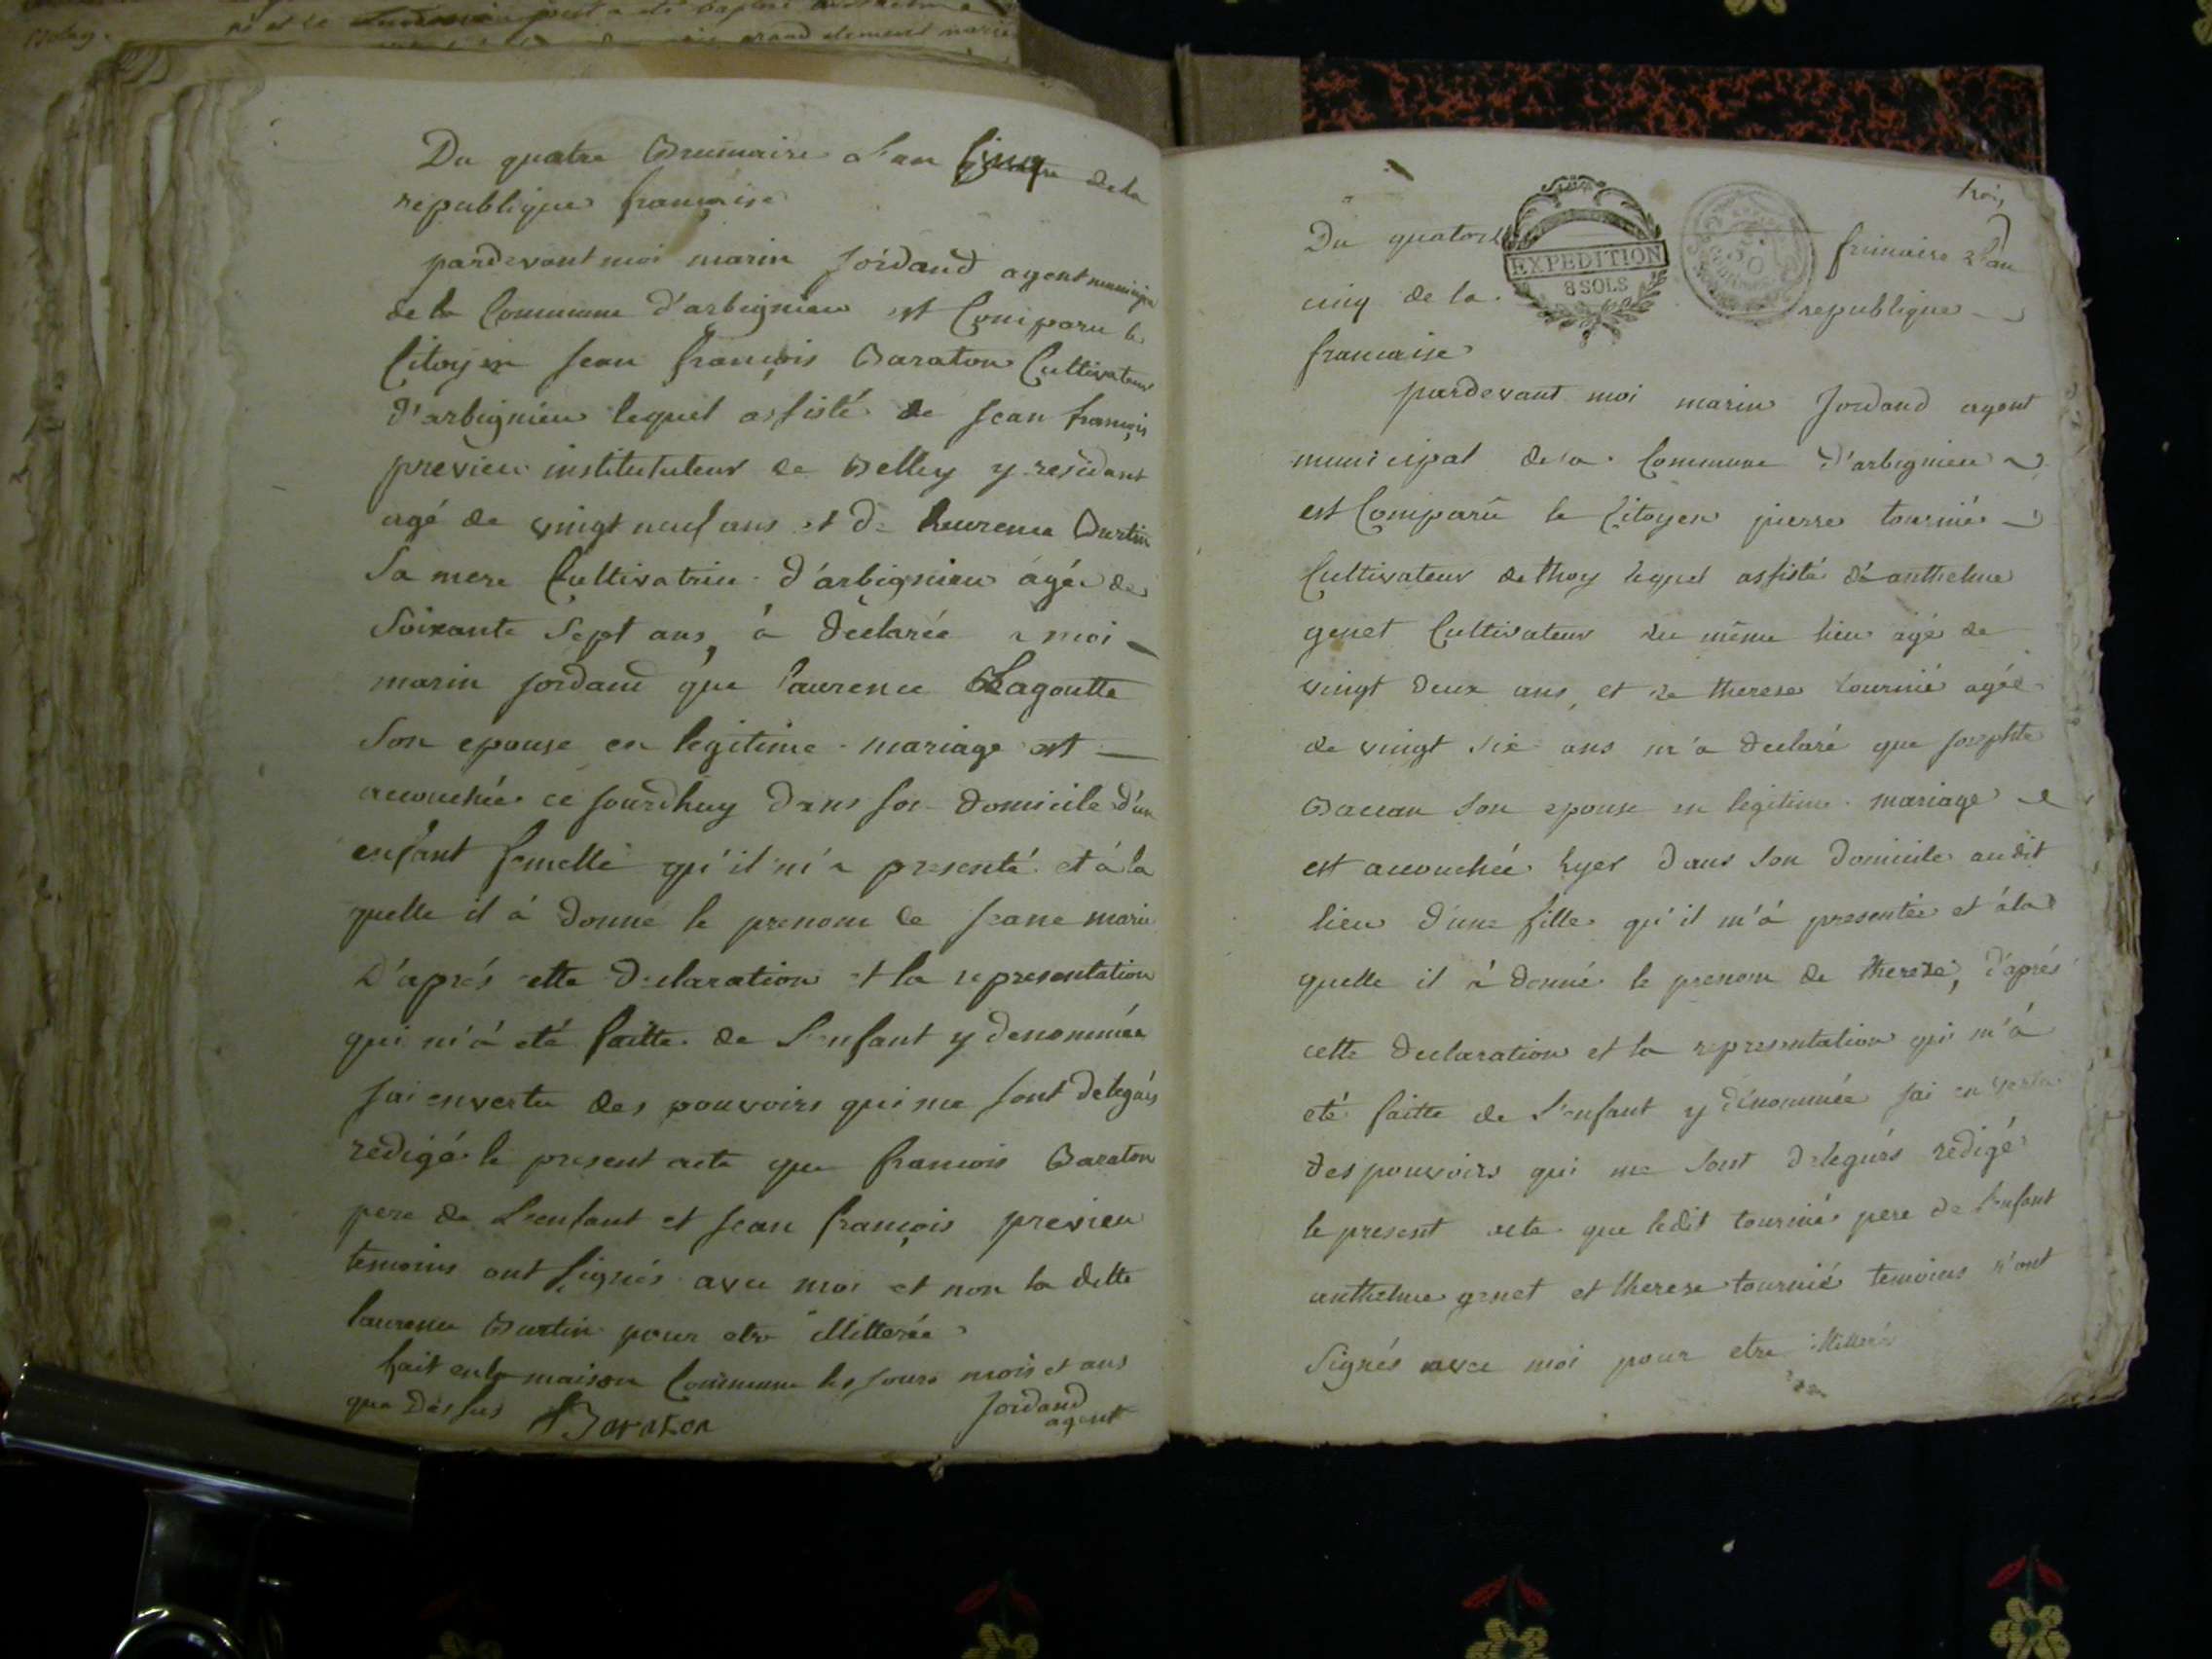 Du quatre Brumaire L'an Cinq de la
republique française
pardevant moi marin Jordand agent municipal
de la Commune d'arbignieu est Comparu le
Citoyen Jean françois Baraton Cultivateur
d'arbignieu lequel assisté de Jean françois
previeu institututeur de Belley y residant
agé de vingt neuf ans et de laurence Burtin
Sa mere Cultivatrice d'arbignieu agée de
Soixante Sept ans, à déclarée a moi
marin jordand que laurence Lagoutte
Son epouse en legitime mariage est
accouchée ce jourdhuy dans son domicile d'un
enfant femelle qu'il m'a presenté et à la
quelle il à donné le prenom de Jeane marie
D'aprés cette declaration et la representation
qui m'à été faitte de L'enfant y denommée
J'ai en vertu des pouvoirs qui me sont delegués
redigé le present acte que francois Baraton
pere de L'enfant et Jean françois previeu
temoins ont signés avec moi et non la ditte
laurence Burtin pour etre illitterée
fait en la maison Commune les jours mois et ans
que Dessus Baraton Jordand
agent
trois
Du quatorze frimaire L'an
EXPEDITION
8 SOLS
50
centimes
cinq de la republique
francaise
pardevant moi marin Jordand agent
municipal de la Commune d'arbignieu
est Comparû le Citoyen pierre tournié
Cultivateur de thoy lequel assisté d'anthelme
genet Cultivateur du même lieu agé de
vingt deux ans, et de therese tournié agée
de vingt six ans m'a declaré que josephte
Son epouse en legitime mariage
est accouchée hyer dans Son domicile au dit
lieu d'une fille qu'il m'à presentée et à la
quelle il à donné le prenom de therese, d'aprés
cette declaration et la representation qui m'à
eté faitte de L'enfant y dénommée J'ai en vertu
des pouvoirs qui me sont delegués redigé
le present acte que ledit tournié pere de L'enfant
anthelme genet et therese tournié temoins n'ont
Signés avec moi pour etre illitterés